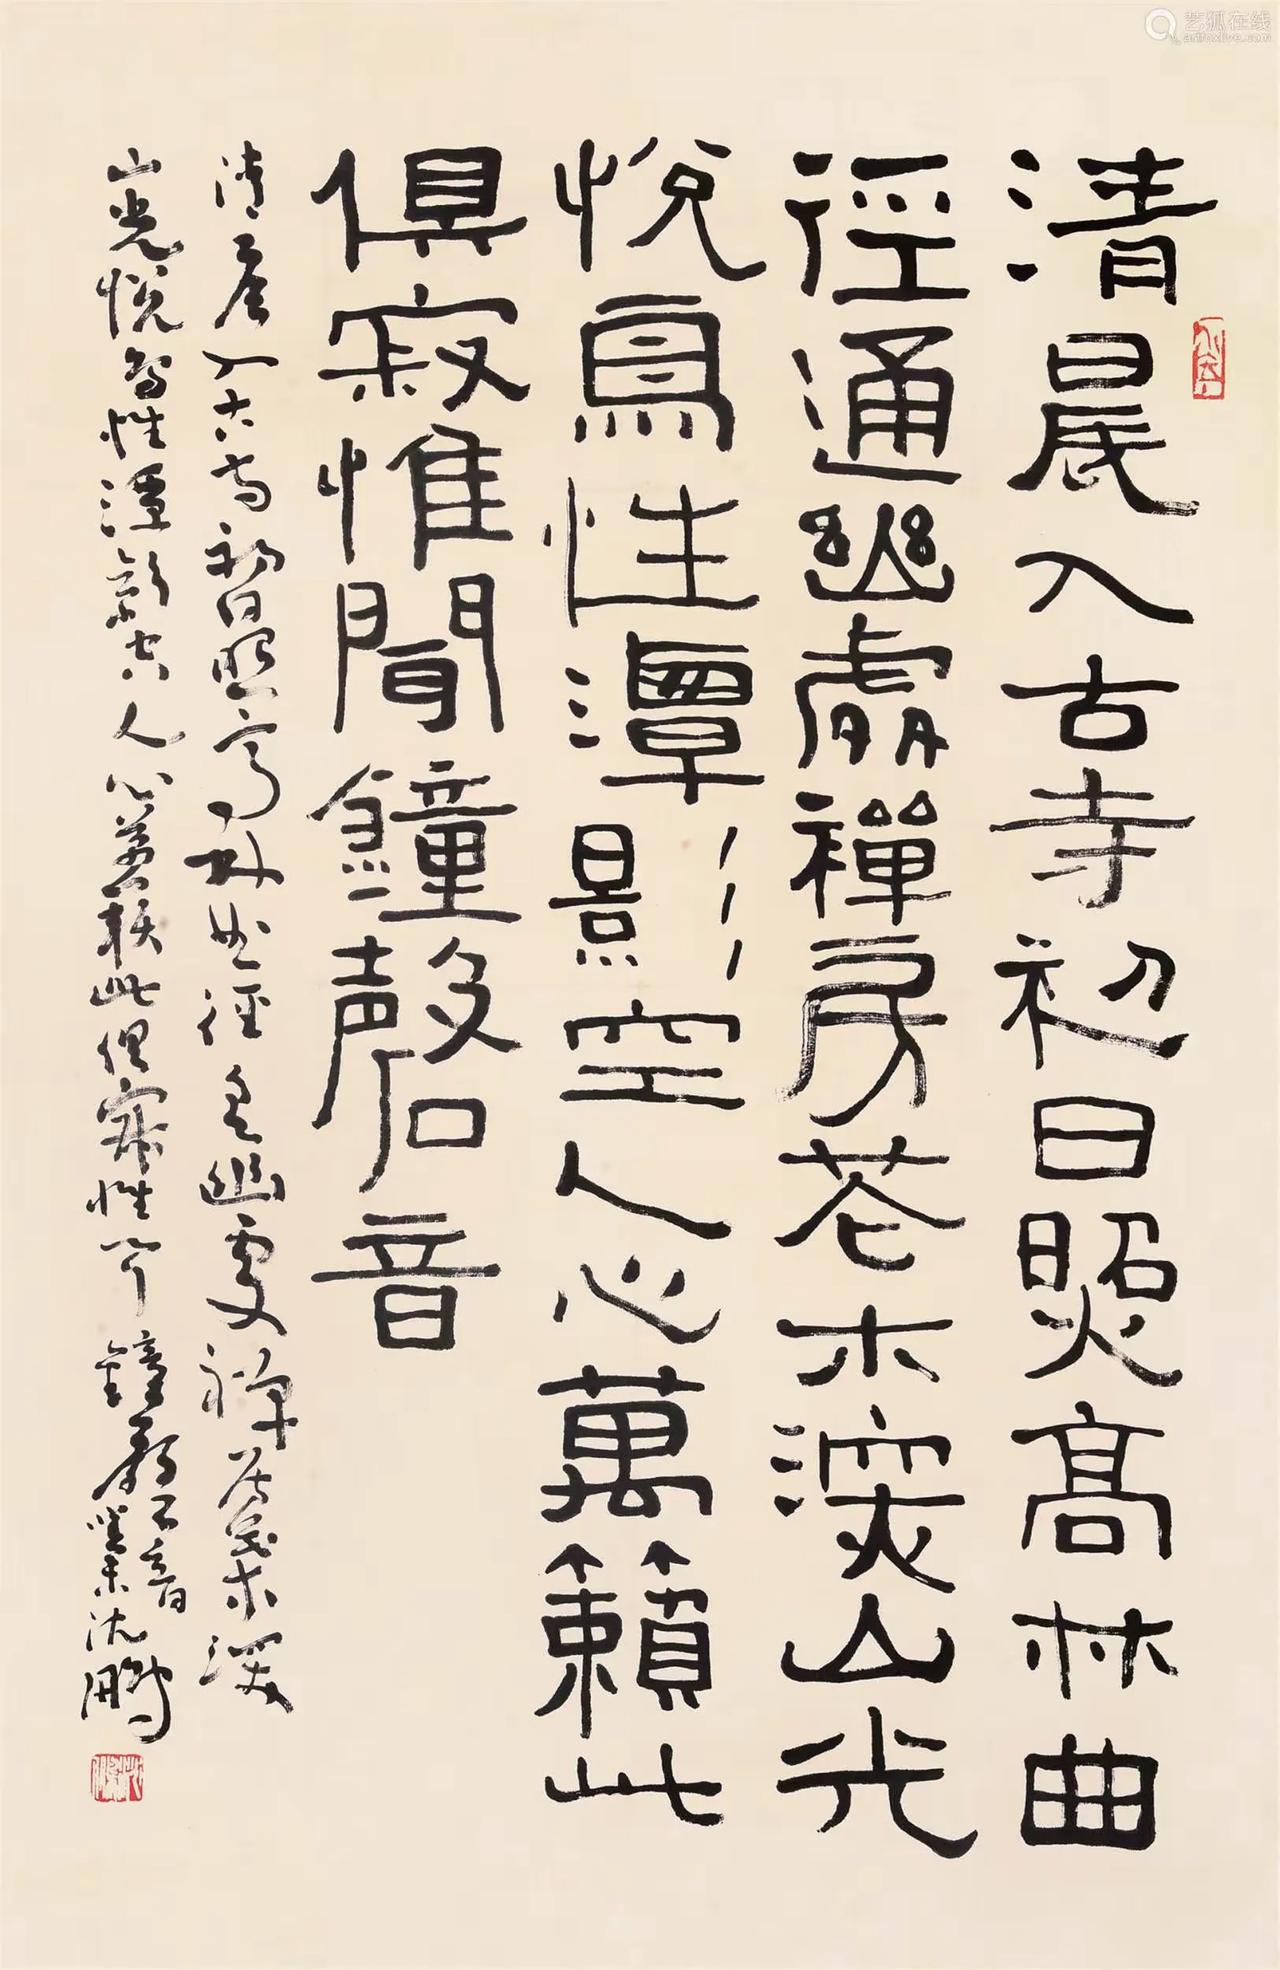 清晨入古寺初日照高林曲
徑通幽處禪房花木深山光
悅鳥性潭影空人心萬籟此
俱寂惟聞鐘磬音
清晨入古寺初日照高林曲徑通幽處禪房花木深
山光悅鳥性潭影空人心萬籟此俱寂惟聞鐘磬音癸未沈鵬
艺狐在线
artfoxlive.com